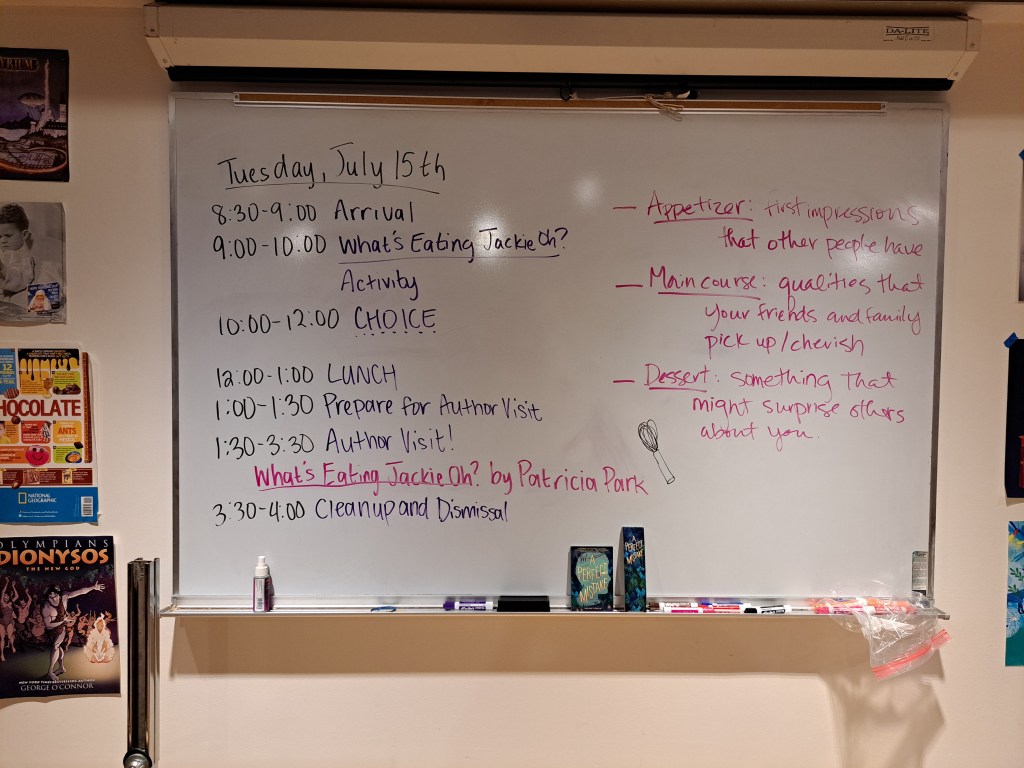 DA-LITE
Tuesday, July 15th
8:30-9:00 Arrival
9:00-10:00 What's Eating Jackie Oh?
Activity
10:00-12:00 CHOICE
12:00-1:00 LUNCH
1:00-1:30 Prepare for Author Visit
1:30-3:30 Author Visit!
What's Eating Jackie Oh? by Patricia Park
3:30-4:00 Cleanup and Dismissal
— Appetizer: first impressions
that other people have
— Main course: qualities that
your friends and family
pick up/cherish
— Dessert: something that
might surprise others
about you.
A
PERFECT
MISTAKE
A
PERFECT
MISTAKE
HOCOLATE
ANTS
NATIONAL
GEOGRAPHIC
OLYMPIANS
DIONYSOS
THE NEW GOD
GEORGE O'CONNOR